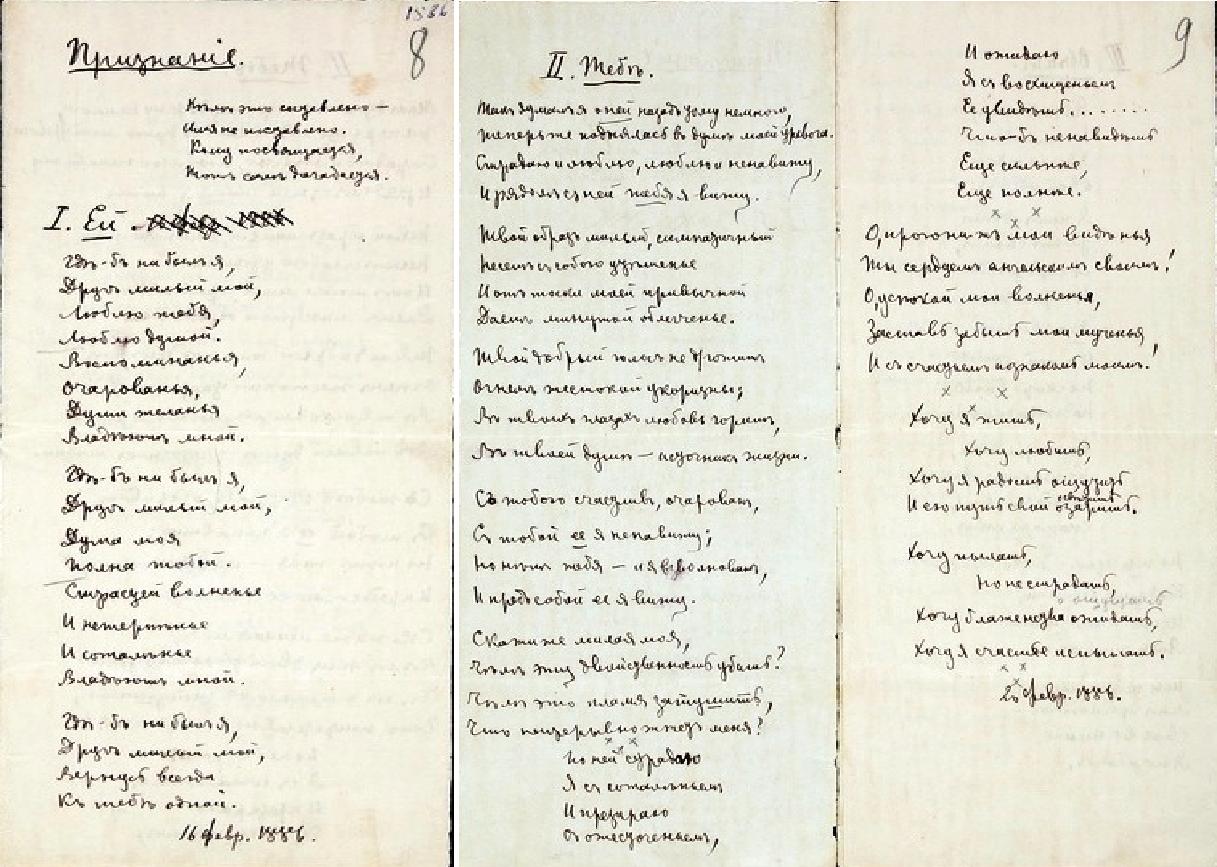 1886
8
Признаніе.
Кѣмъ это сотавлено —
Имя не поставлено.
Кому посвящается,
Тотъ самъ догадается.
I. Ей
Гдѣ-бъ ни былъ я,
Другъ милый мой,
Люблю тебя,
Люблю душой.
Воспоминанья,
Очарованья,
Души желанья
Владѣютъ мной.
Гдѣ-бъ ни былъ я,
Другъ милый мой,
Дума моя
Полна тобой.
Страстей волненье
И нетерпѣнье
И сомнѣнье
Владѣютъ мной.
Гдѣ-бъ ни былъ я,
Другъ милый мой,
Вернусь всегда
Къ тебѣ одной.
16 февр. 1886.
II. Тебѣ.
Такъ думалъ я о ней назадъ тому немного,
Теперь же поднялась въ душѣ моей тревога.
Страдаю и люблю, люблю и ненавижу,
И рядомъ съ ней тебя я вижу.
Твой образъ милый, симпатичный
Несетъ съ собою утѣшенье
И отъ тоски моей привычной
Даетъ минутой облегченье.
Твой добрый голосъ не грозитъ
Огнемъ жестокой укоризны;
Въ твоихъ глазахъ любовь горитъ,
Въ твоей душѣ — источникъ жизни.
Съ тобою счастливъ, очарованъ,
Съ тобой ее я ненавижу;
Но нѣтъ тебя — и я взволнованъ,
И предъ собой ее я вижу.
Скажи же милая моя,
Чѣмъ эту двойственность убить?
Чѣмъ это пламя затушить,
Что непрерывно жжетъ меня?
По ней страдаю
Я съ сожалѣньемъ
И презираю
Съ ожесточеньемъ,
9
И ожидаю
Я съ восхищеньемъ
Ее увидѣть.......
Чтобъ ненавидѣть
Еще сильнѣе,
Еще полнѣе.
О, прогони-жъ мои видѣнья
Ты сердцемъ ангельскимъ своимъ!
О, успокой мои волненья,
Заставь забыть мои мученья,
И съ счастьемъ познакомь моимъ!
Хочу я жить,
Хочу любить,
Хочу я радость ощущать
И ею путь свой озарить.
Хочу пылать,
Но не страдать,
Хочу блаженства ожидать,
Хочу я счастье испытать.
25 февр. 1886.